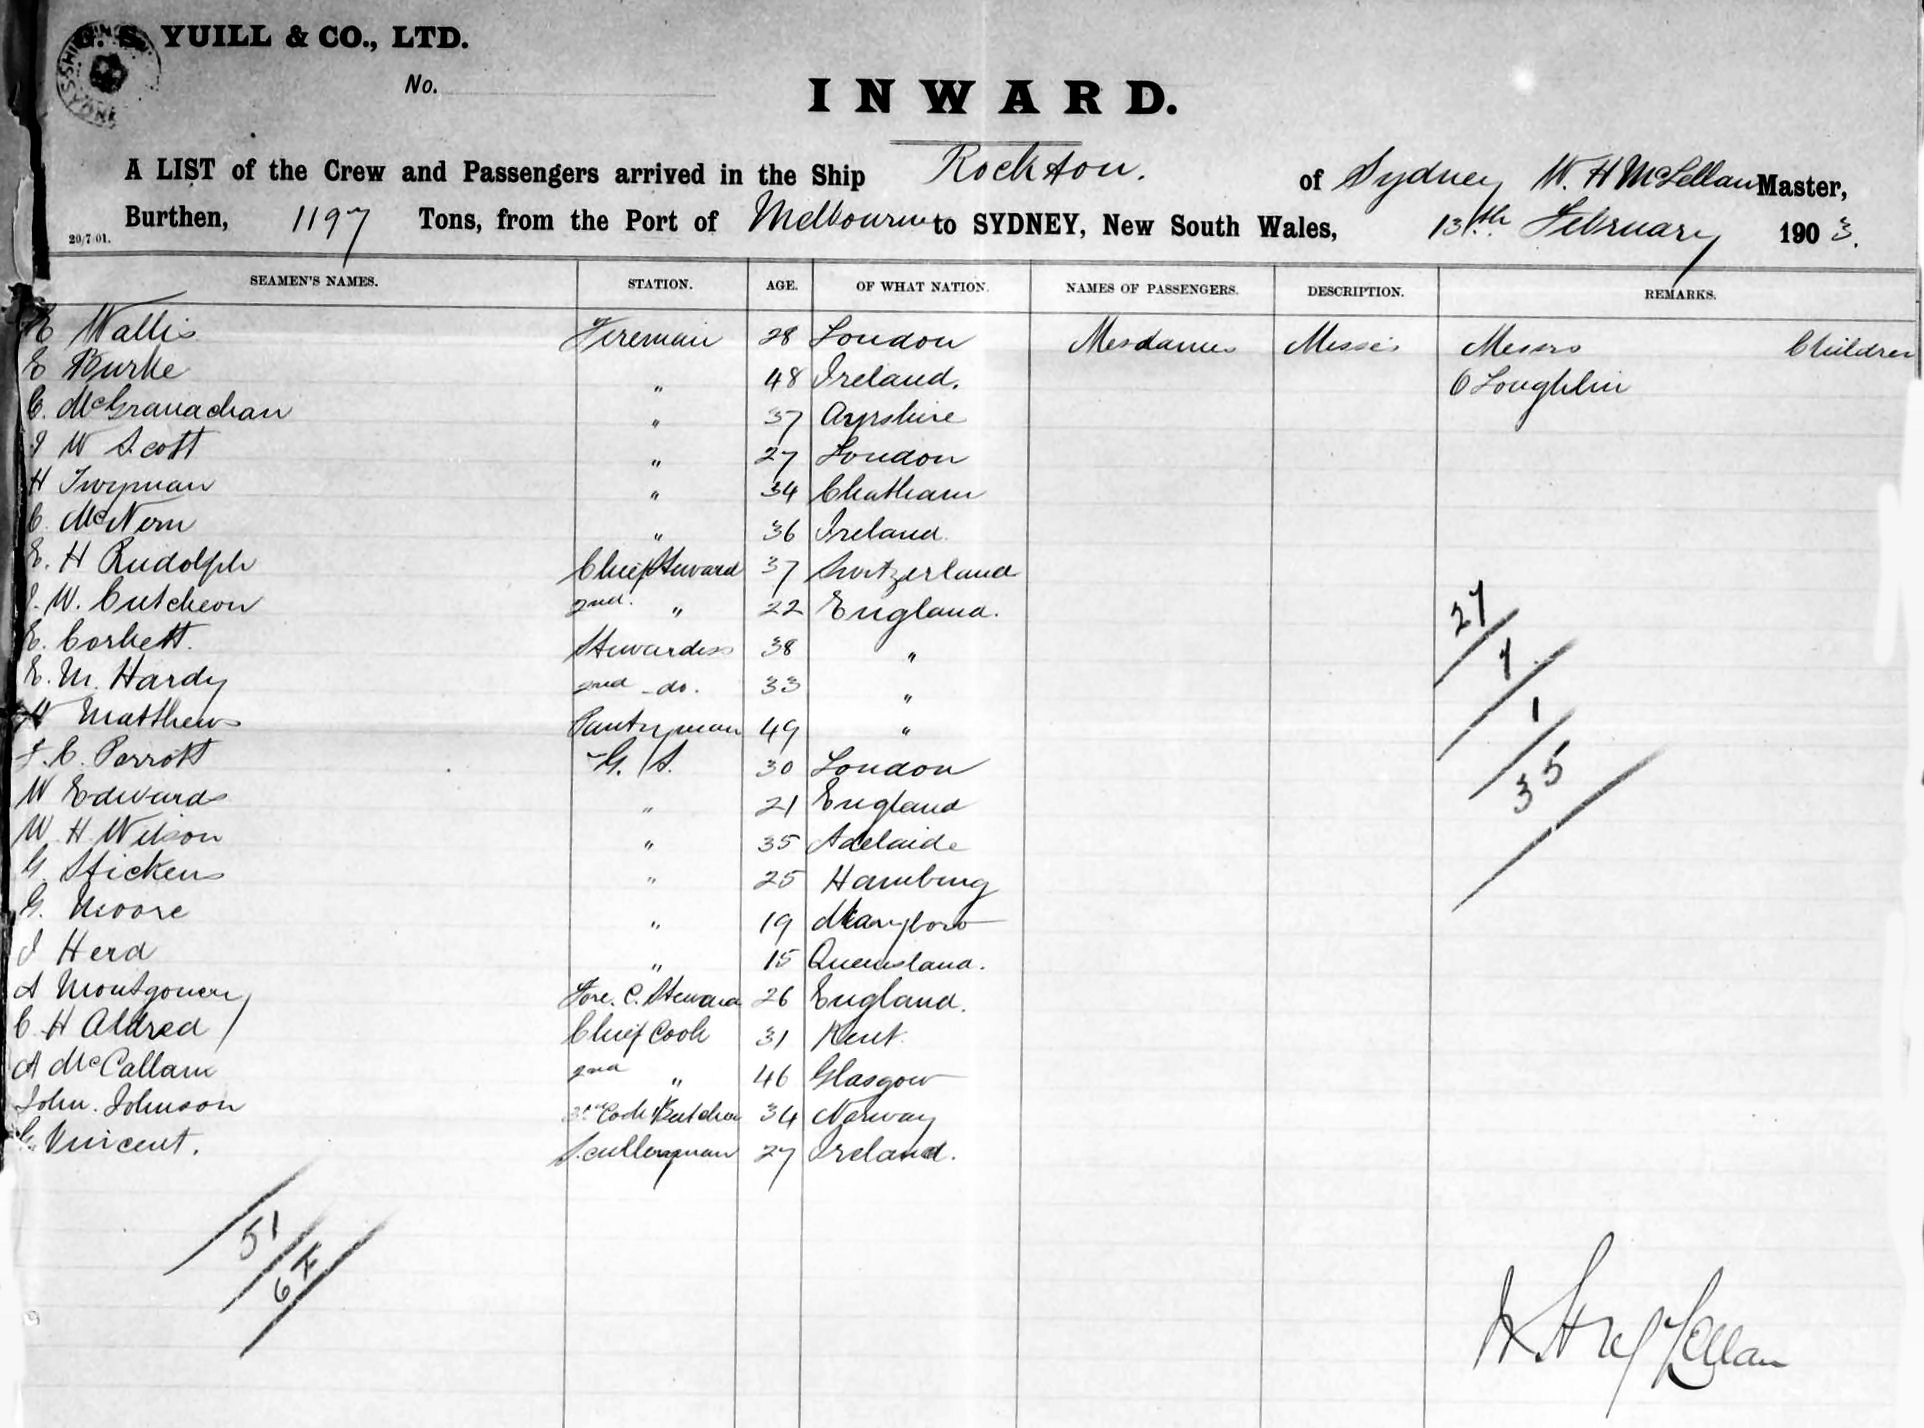 G. S. YUILL & CO., LTD.
No.
INWARD.
A LIST of the Crew and Passengers arrived in the Ship Rockton. of Sydney W. H McLellan Master,
Burthen, 1197 Tons, from the Port of Melbourne to SYDNEY, New South Wales, 13th February 1903.
20/7/01.
SEAMEN'S NAMES. STATION. AGE. OF WHAT NATION. NAMES OF PASSENGERS. DESCRIPTION. REMARKS.
E Wallis Fireman 28 London Mesdames Misses Messrs Children
E Burke " 48 Ireland. O Loughlin
C. McGranachan " 37 Ayrshire
J W Scott " 27 London
H Twyman " 34 Chatham
C. McNern " 36 Ireland.
E. H Rudolph Chief Steward 37 Switzerland
J. W. Cutcheon 2nd. " 22 England.
E. Corbett. Stewardess 38 "
E. M. Hardy 2nd - do. 33 "
H Matthews Pantryman 49 "
F. C. Perrott G. S. 30 London
W Edwards " 21 England
W. H. Wilson " 35 Adelaide
G. Stickens " 25 Hamburg
G. Moore " 19 Maryboro
J Herd " 15 Queensland.
A Montgomery Fore. C. Steward 26 England.
C. H Aldred Chief Cook 31 Kent.
A McCallam 2nd " 46 Glasgow
John. Johnson 3rd Cook & Butcher 34 Norway
G. Vincent. Sculleryman 27 Ireland.
27
1
1
35
51
6
W H McLellan